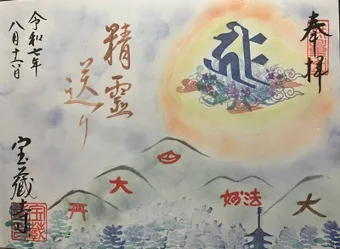 奉拝
精霊
送り
令和七年
八月十六日
宝蔵寺
大
妙法
大